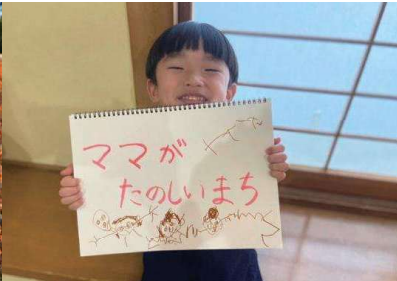 ママが
たのしいまち